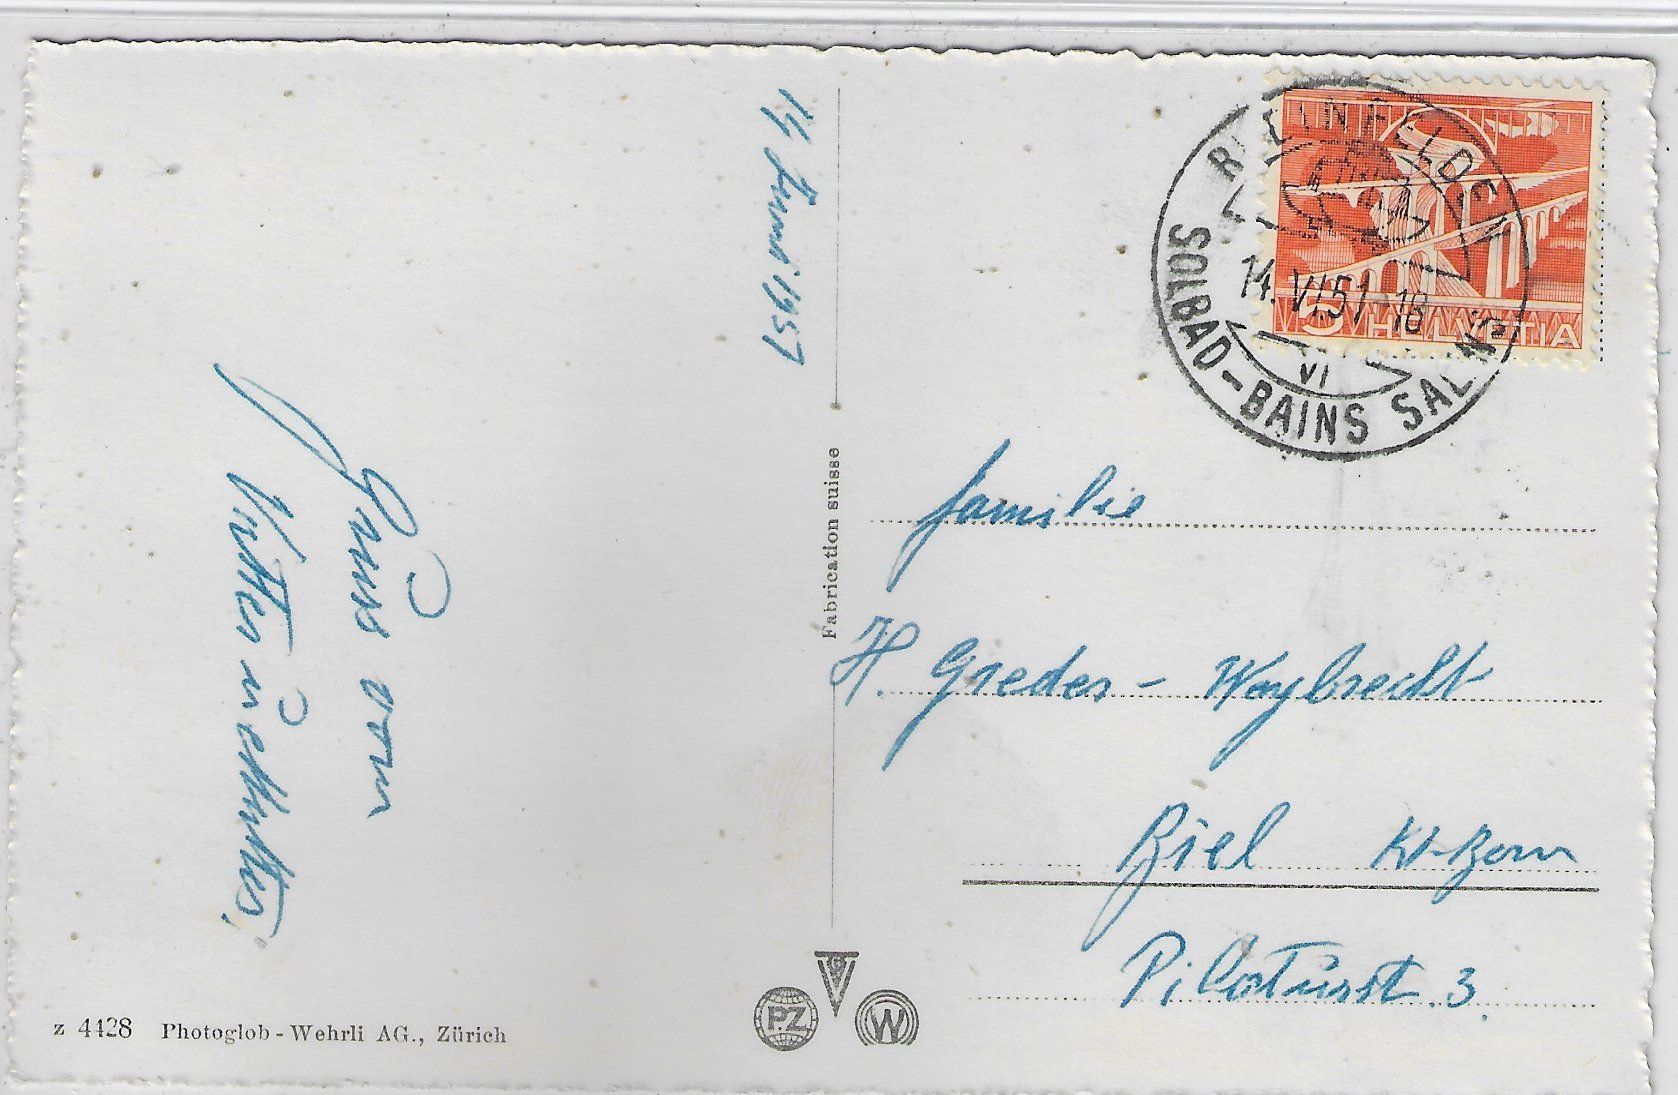 14 Juni 1951
Gruss vom
Vatter u.
Fabrication suisse
RHEINFELDEN
14.VI.51-18
VI
SOLBAD-BAINS SALINS
5 HELVETIA
Familie
H. Greder-Weybrecht
Biel Kt-Bern
Pilatusst. 3.
z 4428 Photoglob-Wehrli AG., Zürich
PZ
V
G
W